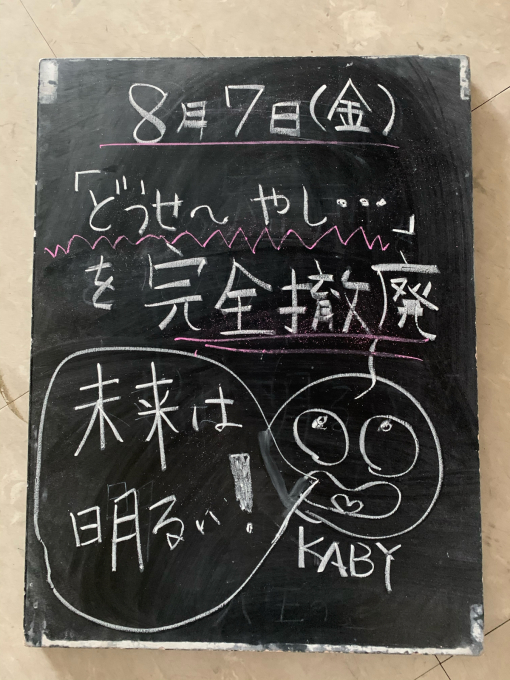 8月7日(金)
「どうせ〜やし…」
を完全撤廃
未来は
明るい!
KABY